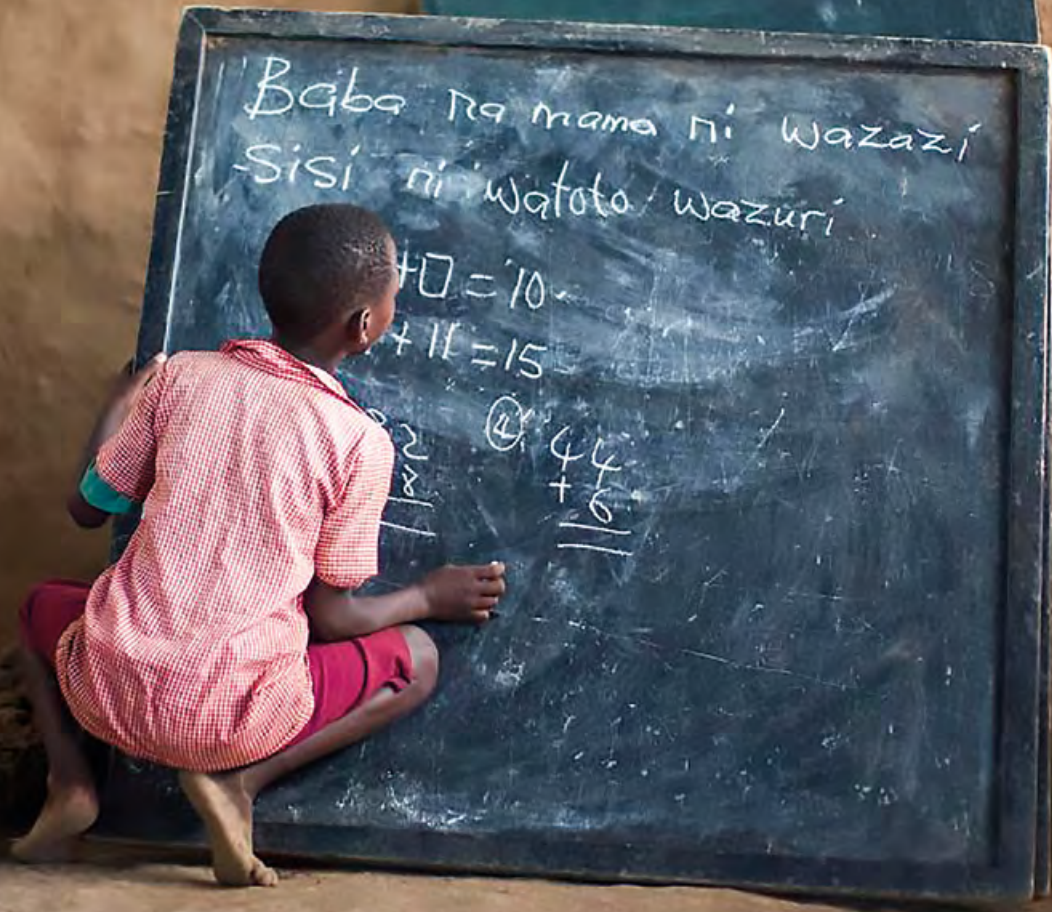 Baba na mama ni wazazi
Sisi ni watoto wazuri
+□=10
+11=15
2
8
④ 44
+ 6